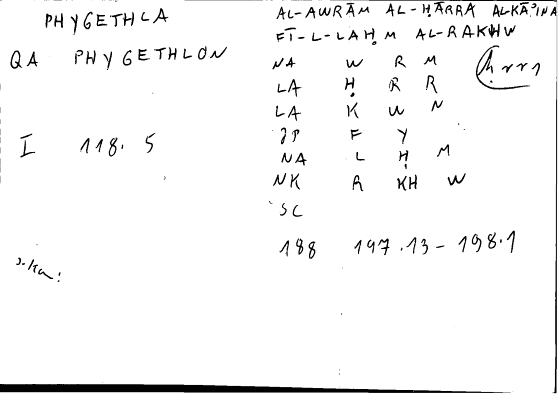 PHYGETHLA
QA PHYGETHLON
I 118.5
AL-AWRĀM AL-ḤĀRRA ALKĀʾINA
FĪ-L-LAḤM AL-RAKHW
NA W R M
LA Ḥ R R
LA K W N
JP F Y
NA L Ḥ M
NK R KH W
SC
188 197.13-198.1